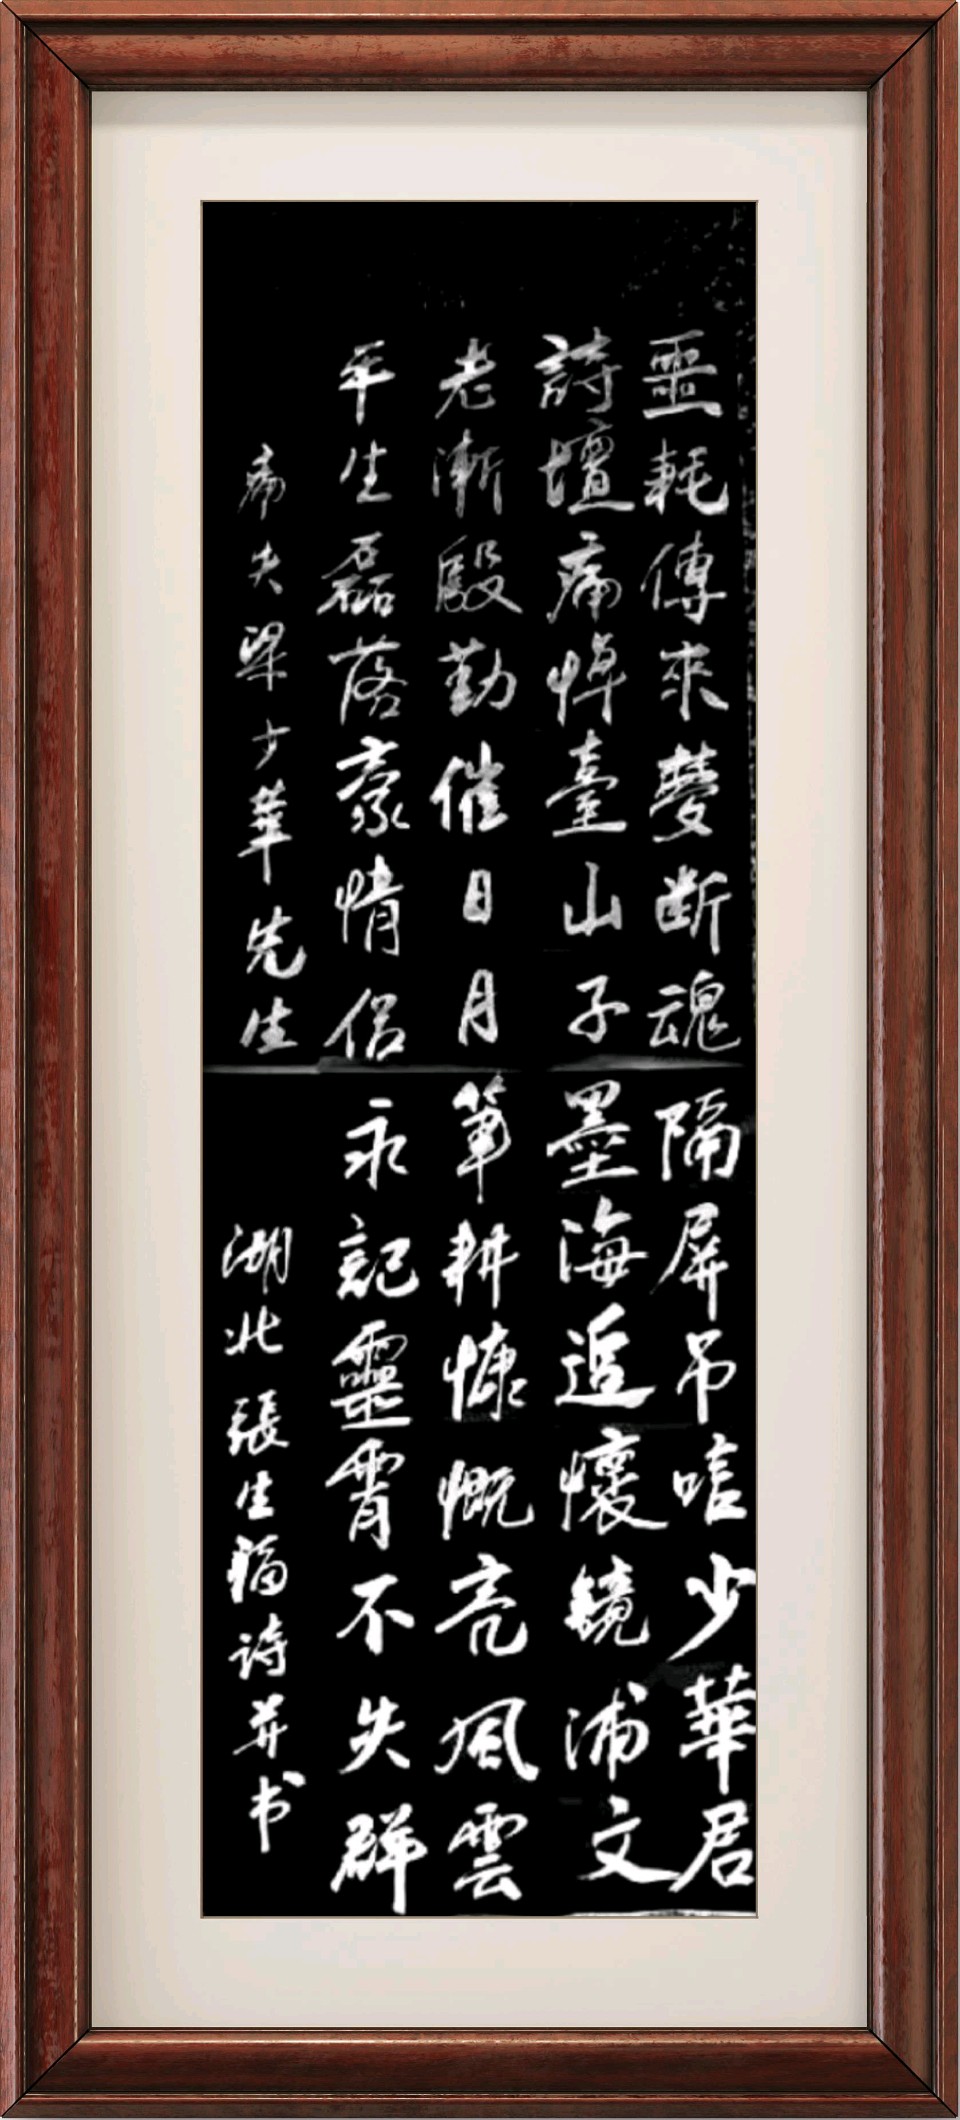 噩耗傳來夢斷魂隔屏吊唁少華君
詩壇痛悼臺山子墨海追懷鏡浦文
老漸殷勤催日月筆耕慷慨亮風雲
平生磊落豪情侣永記靈霄不失群
痛失梁少華先生 湖北張生福诗并书